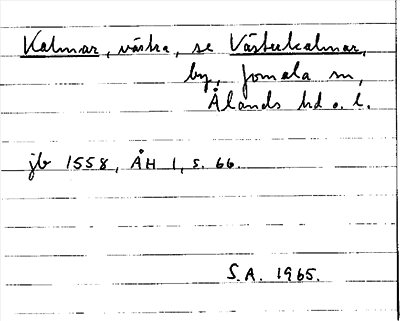 Kalmar, västra, se Västerkalmar,
by, Jomala sn,
Ålands hd o. l.
jb 1558, ÅH 1, s. 66.
S.A. 1965.